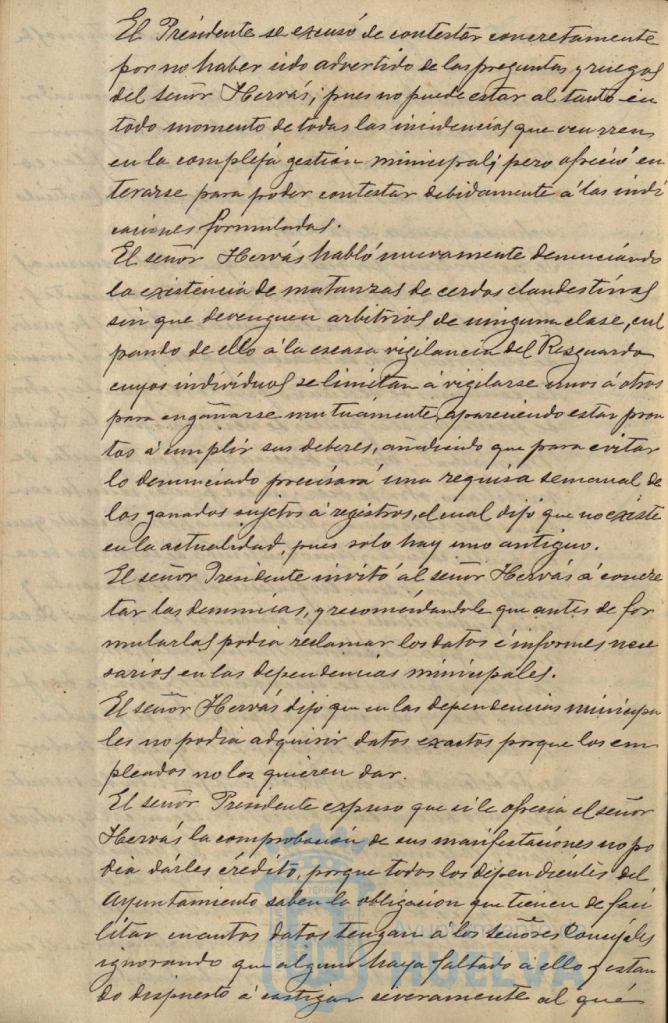 El Presidente se excusó de contestar concretamente
por no haber sido advertido de las preguntas y ruegos
del señor Hervás; pues no puede estar al tanto en
todo momento de todas las incidencias que ocurren
en la compleja gestión municipal; pero ofreció en
terarse para poder contestar debidamente á las indi
caciones formuladas.
El señor Hervás habló nuevamente denunciando
la existencia de matanzas de cerdos clandestinas
sin que devenguen arbitrios de ninguna clase, cul
pando de ello á la escasa vigilancia del Resguardo
cuyos individuos se limitan á vigilarse unos á otros
para engañarse mutuamente, apareciendo estar pron
tos á cumplir sus deberes, añadiendo que para evitar
lo denunciado precisará una requisa semanal de
los ganados sujetos á registros, el cual dijo que no existe
en la actualidad, pues solo hay uno antiguo.
El señor Presidente invitó al señor Hervás á concre
tar las denuncias, y recomendandole que antes de for
mularlas podia reclamar los datos é informes nece
sarios en las dependencias municipales.
El señor Hervás dijo que en las dependencias municipa
les no podia adquirir datos exactos porque los em
pleados no los quieren dar.
El señor Presidente expuso que si le ofrecia el señor
Hervás la comprobación de sus manifestaciones no po
dia dárles crédito, porque todos los dependientes del
Ayuntamiento saben la obligacion que tienen de faci
litar cuantos datos tengan á los señores Concejales
ignorando que alguno haya faltado a ello y estan
do dispuesto á castigar severamente al que
HUELVA